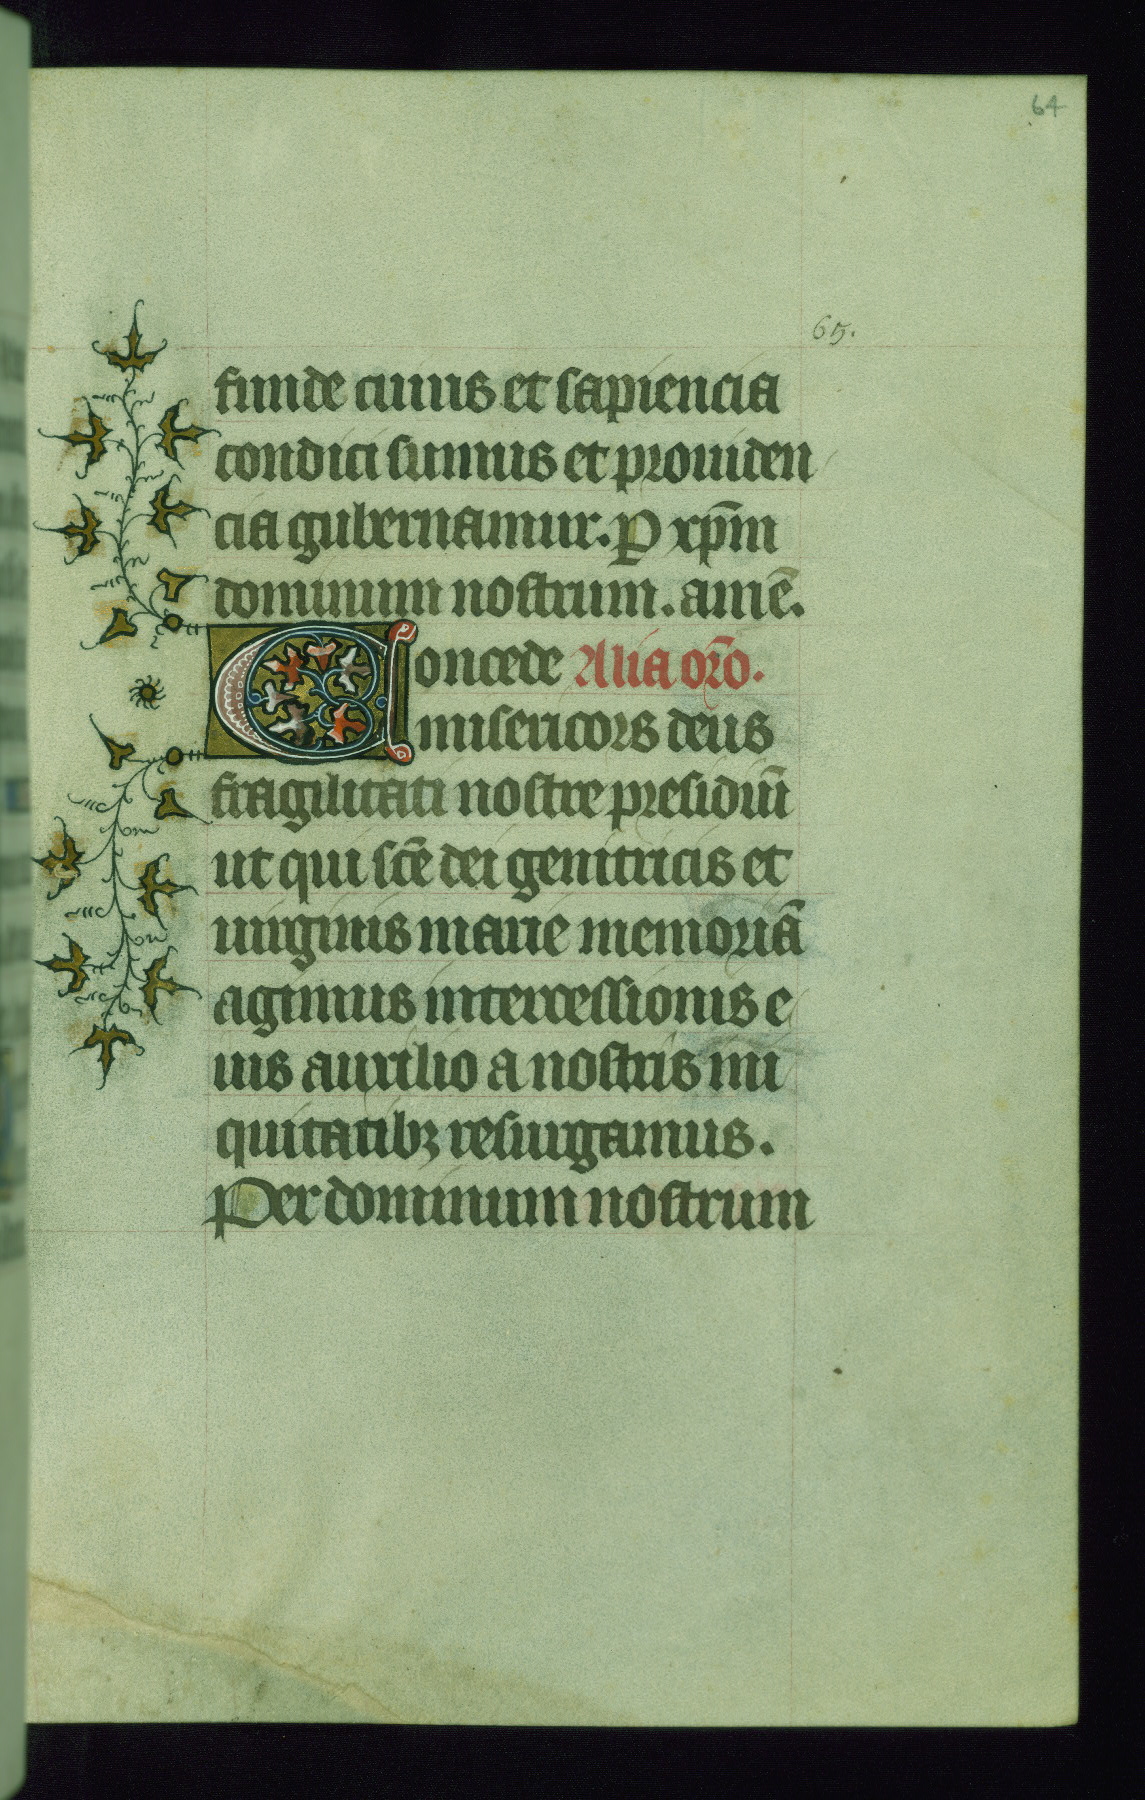 64
65.
funde cuius et sapiencia
condici sumus et prouiden
cia gubernamur. P xp̄m
dominum nostrum. amē.
Concede Alia orō.
misericors deus
fragilitati nostre presidiū
ut qui scē dei genitricis et
uirginis marie memoriā
agimus intercessionis e
ius auxilio a nostris ini
quitatibꝫ resurgamus.
Per dominum nostrum